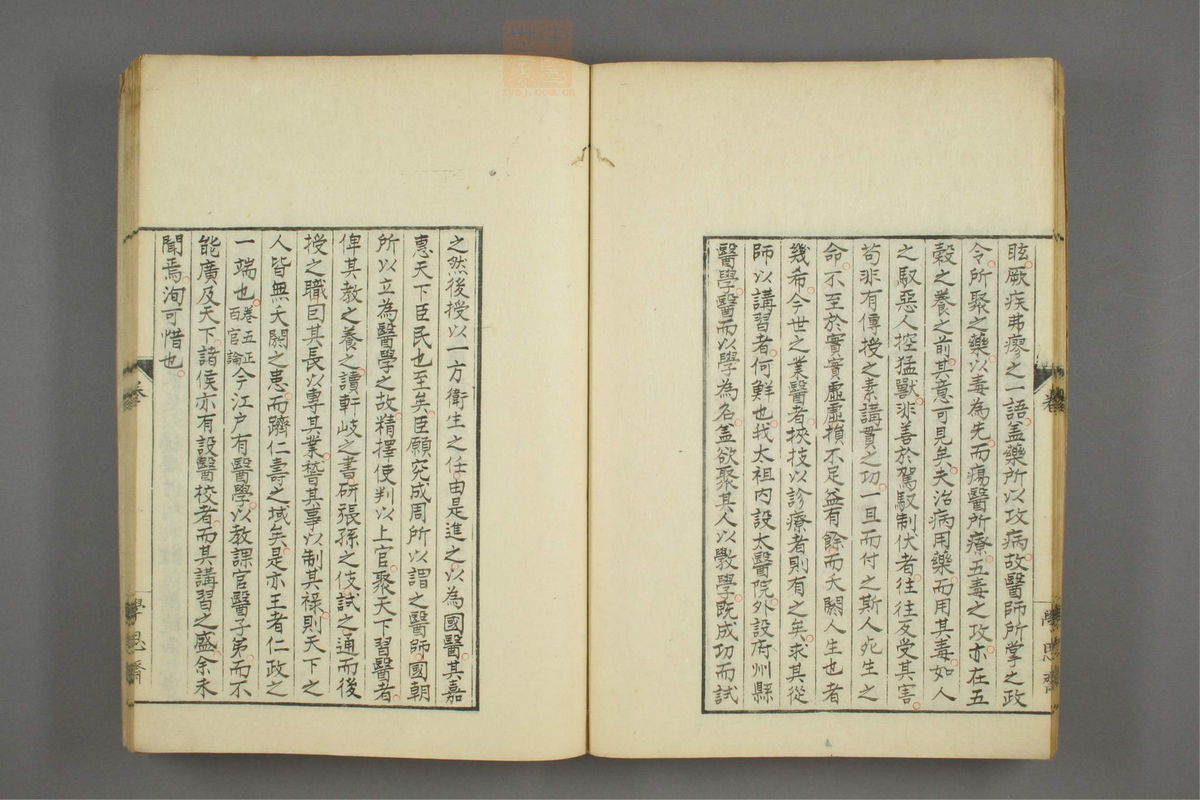 眩厥疾弗瘳之一語蓋藥所以攻病故醫師所掌之政
令所聚之藥以毒為先而瘍醫所療五毒之攻亦在五
穀之養之前其意可見矣夫治病用藥而用其毒如人
之馭惡人控猛獸非善於駕馭制伏者往往反受其害
苟非有傳授之素講貫之功一旦而付之斯人死生之
命不至於實實虛虛損不足益有餘而夭閼人生也者
幾希今世之業醫者挾技以診療者則有之矣求其從
師以講習者何鮮也我太祖内設太醫院外設府州縣
醫學醫而以學為名蓋欲聚其人以教學既成功而試
之然後授以一方衛生之任由是進之以為國醫其嘉
惠天下臣民也至矣臣願究成周所以謂之醫師國朝
所以立為醫學之故精擇使判以上官聚天下習醫者
俾其教之養之讀軒岐之書研張孫之伎試之通而後
授之職曰其長以專其業稽其事以制其祿則天下之
人皆無夭閼之患而躋仁壽之域矣是亦王者仁政之
一端也卷五正百官論今江戸有醫學以教課官醫子弟而不
能廣及天下諸侯亦有設醫校者而其講習之盛余未
聞焉洵可惜也
學思齋
學思齋